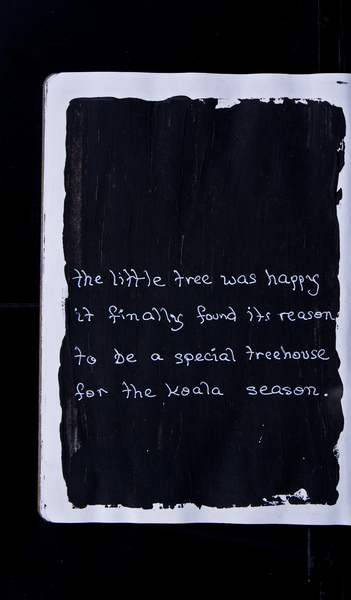 the little tree was happy
it finally found its reason,
to be a special treehouse
for the koala season.